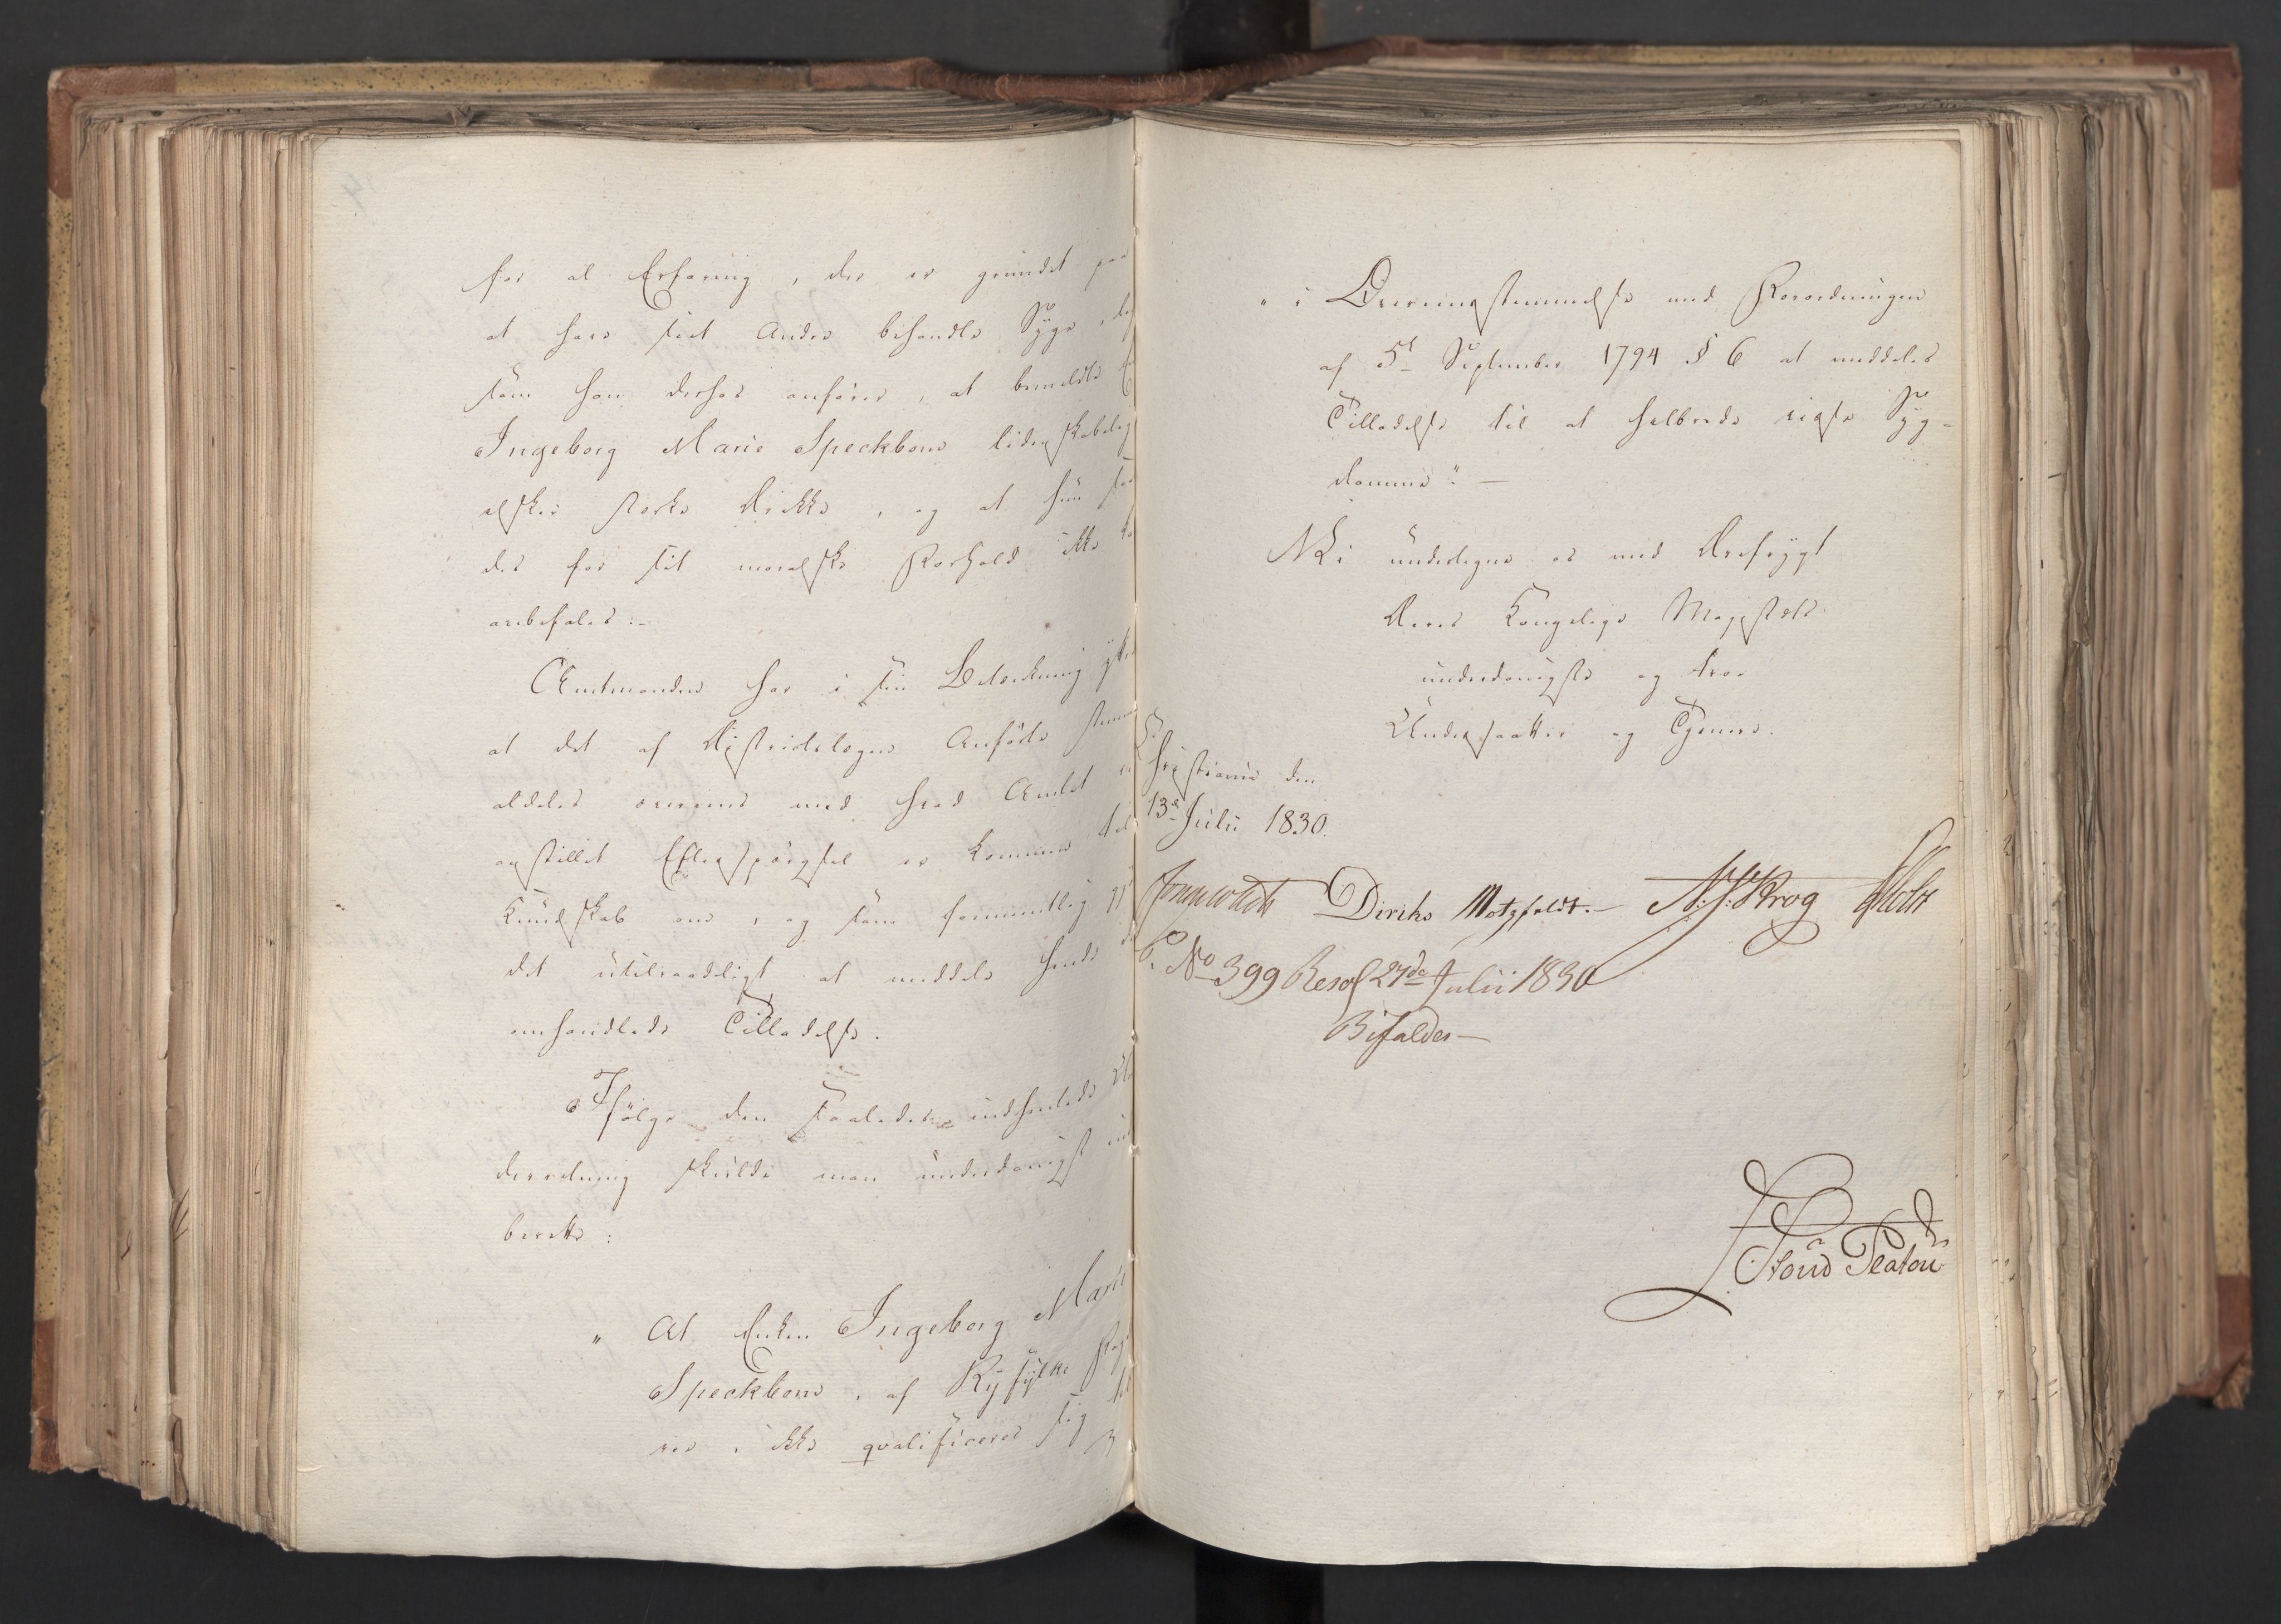 for al Erfaring, der er grundet paa
at have seet Andre behandle Syge, lige
som han derhos anfører, at bemeldte
Ingeborg Marie Speckbom lidenskabelig
elsker stærke Drikke, og at hun
des for sit moralske Forhold ikke kan
anbefales:-
Amtmanden har i sin Betænkning yttret
at det af Districtslægen Anførte stemmer
aldeles overeens med hvad Amtet ved
anstillet Efterspørgsel er kommen til
Kundskab om, og som formentlig gjør
det utilraadeligt at meddele hende den
omhandlede Tilladelse.
Ifølge den saaledes indhentede Un
derretning skulde man underdanigst ind
berette:
" At Enken Ingeborg Marie
Speckbom, af Ryfylke Fog
rie, ikke qvalificerer sig til
" i Overeensstemmelse med Forordningen
af 5te September 1794 § 6 at meddeles
Tilladelse til at helbrede visse Syg-
domme". —
Vi undertegne os med Ærefrygt
Deres Kongelige Majestæts
underdanigste og troe
Undersaatter og Tjenere.
Christiania den
13de Julii 1830.
Diriks Motzfeldt.- N.J. Krog Holst
P. No 399 Resol 27de Julii 1830
Bifaldes—
Stoud Platou